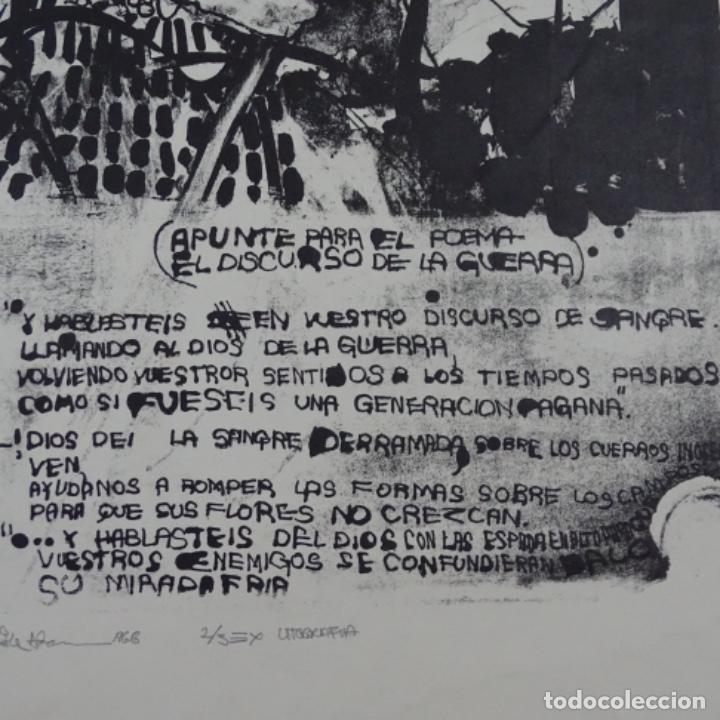 (APUNTE PARA EL POEMA-
EL DISCURSO DE LA GUERRA)
"Y HABLASTEIS EN VUESTRO DISCURSO DE SANGRE
LLAMANDO AL DIOS DE LA GUERRA,
VOLVIENDO VUESTROR SENTIDOS A LOS TIEMPOS PASADOS
COMO SI FUESEIS UNA GENERACION PAGANA".
-¡DIOS DE LA SANGRE DERRAMADA, SOBRE LOS CUERPOS
VEN,
AYUDANOS A ROMPER LAS FORMAS SOBRE LOS CAMPOS
PARA QUE SUS FLORES NO CREZCAN.
"... Y HABLASTEIS DEL DIOS CON LAS ESPADA EN ALTO
VUESTROS ENEMIGOS SE CONFUNDIERAN BAJO
SU MIRADA FRIA
966 2/3 EX LITOGRAFIA
todocoleccion
todocoleccion.net